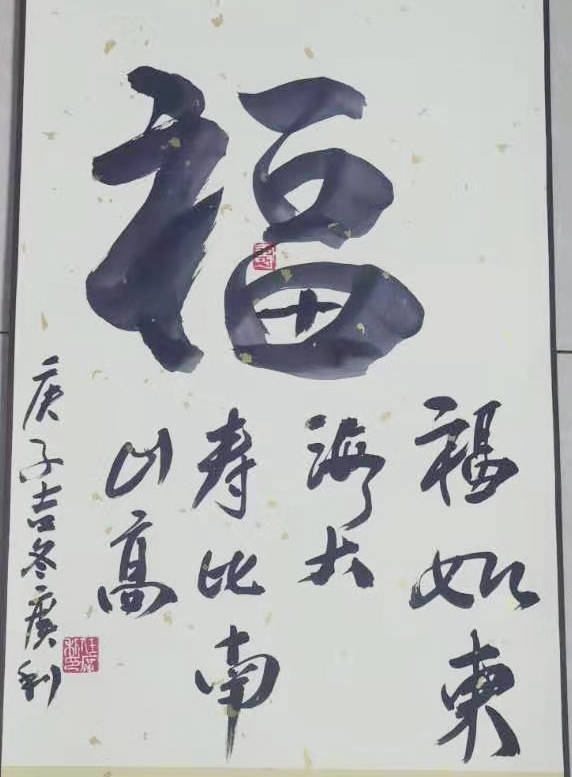 福
福如東
海大
寿比南
山高
庚子吉冬廣利